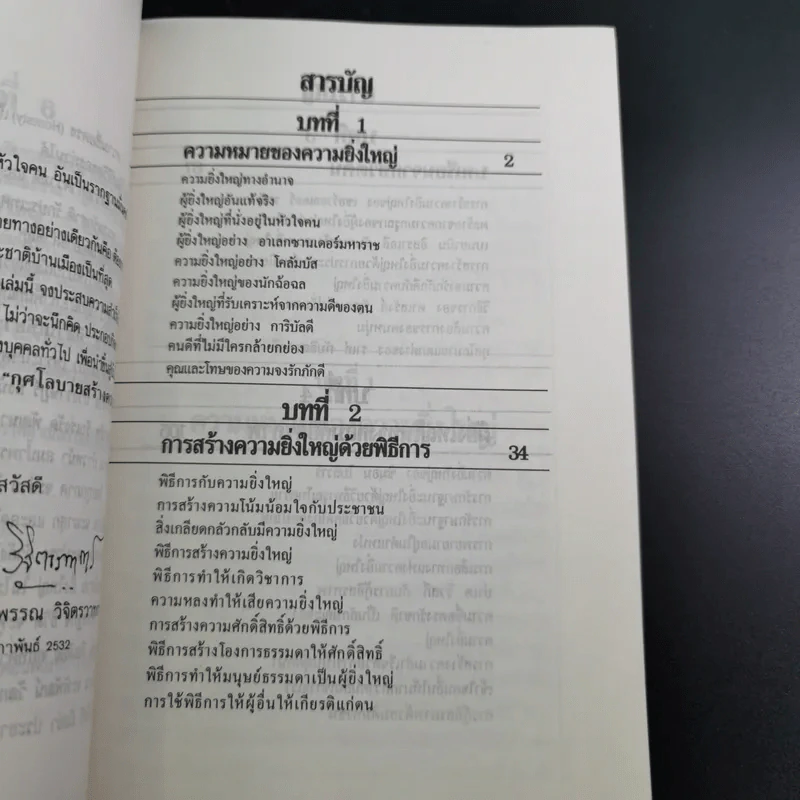 หัวใจคน อันเป็นรากฐาน
ทางอย่างเดียวกันคือ
ชาติบ้านเมืองเป็นที่สุด
เล่มนี้ จงประสบความ
ไม่ว่าจะนึกคิด
บุคคลทั่วไป
"กุศโลบายสร้าง
สวัสดี
พรรณ วิจิตรวาท
2532
สารบัญ
บทที่ 1
ความหมายของความยิ่งใหญ่ 2
ความยิ่งใหญ่ทางอำนาจ
ผู้ยิ่งใหญ่อันแท้จริง
ผู้ยิ่งใหญ่ที่นั่งอยู่ในหัวใจคน
ผู้ยิ่งใหญ่อย่าง อาเลกซานเดอร์มหาราช
ความยิ่งใหญ่อย่าง โคลัมบัส
ความยิ่งใหญ่ของนักฉ้อฉล
ผู้ยิ่งใหญ่ที่รับเคราะห์จากความดีของตน
ความยิ่งใหญ่อย่าง การิบัลดี
คนดีที่ไม่มีใครกล้ายกย่อง
คุณและโทษของความจงรักภักดี
บทที่ 2
การสร้างความยิ่งใหญ่ด้วยพิธีการ 34
พิธีการกับความยิ่งใหญ่
การสร้างความโน้มน้อมใจกับประชาชน
สิ่งเกลียดกลัวกลับมีความยิ่งใหญ่
พิธีการสร้างความยิ่งใหญ่
พิธีการทำให้เกิดวิชาการ
ความหลงทำให้เสียความยิ่งใหญ่
การสร้างความศักดิ์สิทธิ์ด้วยพิธีการ
พิธีการสร้างโองการธรรมดาให้ศักดิ์สิทธิ์
พิธีการทำให้มนุษย์ธรรมดาเป็นผู้ยิ่งใหญ่
การใช้พิธีการให้ผู้อื่นให้เกียรติแก่ตน